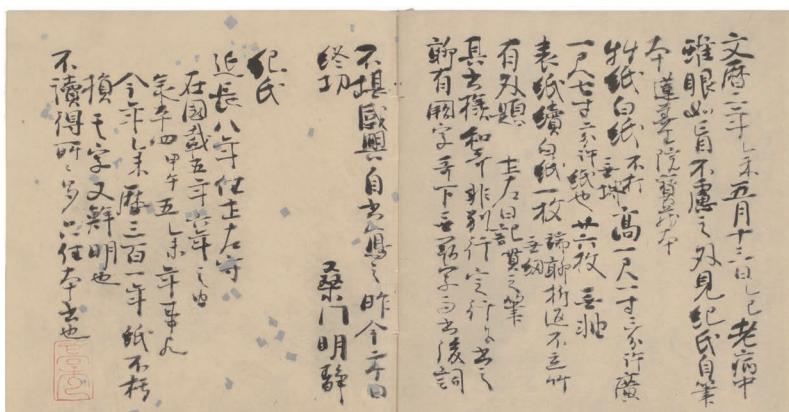 文暦二年乙未五月十三日乙巳老病中
雖眼如盲不慮之外見紀氏自筆
本 蓮華王院寶蔵本
料紙白紙 不打 無堺 高一尺一寸三分許廣
一尺七寸二分許紙也廿六枚 無軸
表紙續白紙一枚 端聊折返不立竹 無紐
有外題 土左日記 貫之筆
其書樣和哥非別行定行ニ書之
聊有闕字哥下無闕字而書後詞
不堪感興自書寫之昨今二ケ日
終功
桑門明静
紀氏
延長八年任土左守
在國載五年六年之由
承平四甲午五乙未年事歟
今年乙未歴三百一年紙不朽
損其字又鮮明也
不讀得所々多只任本書也